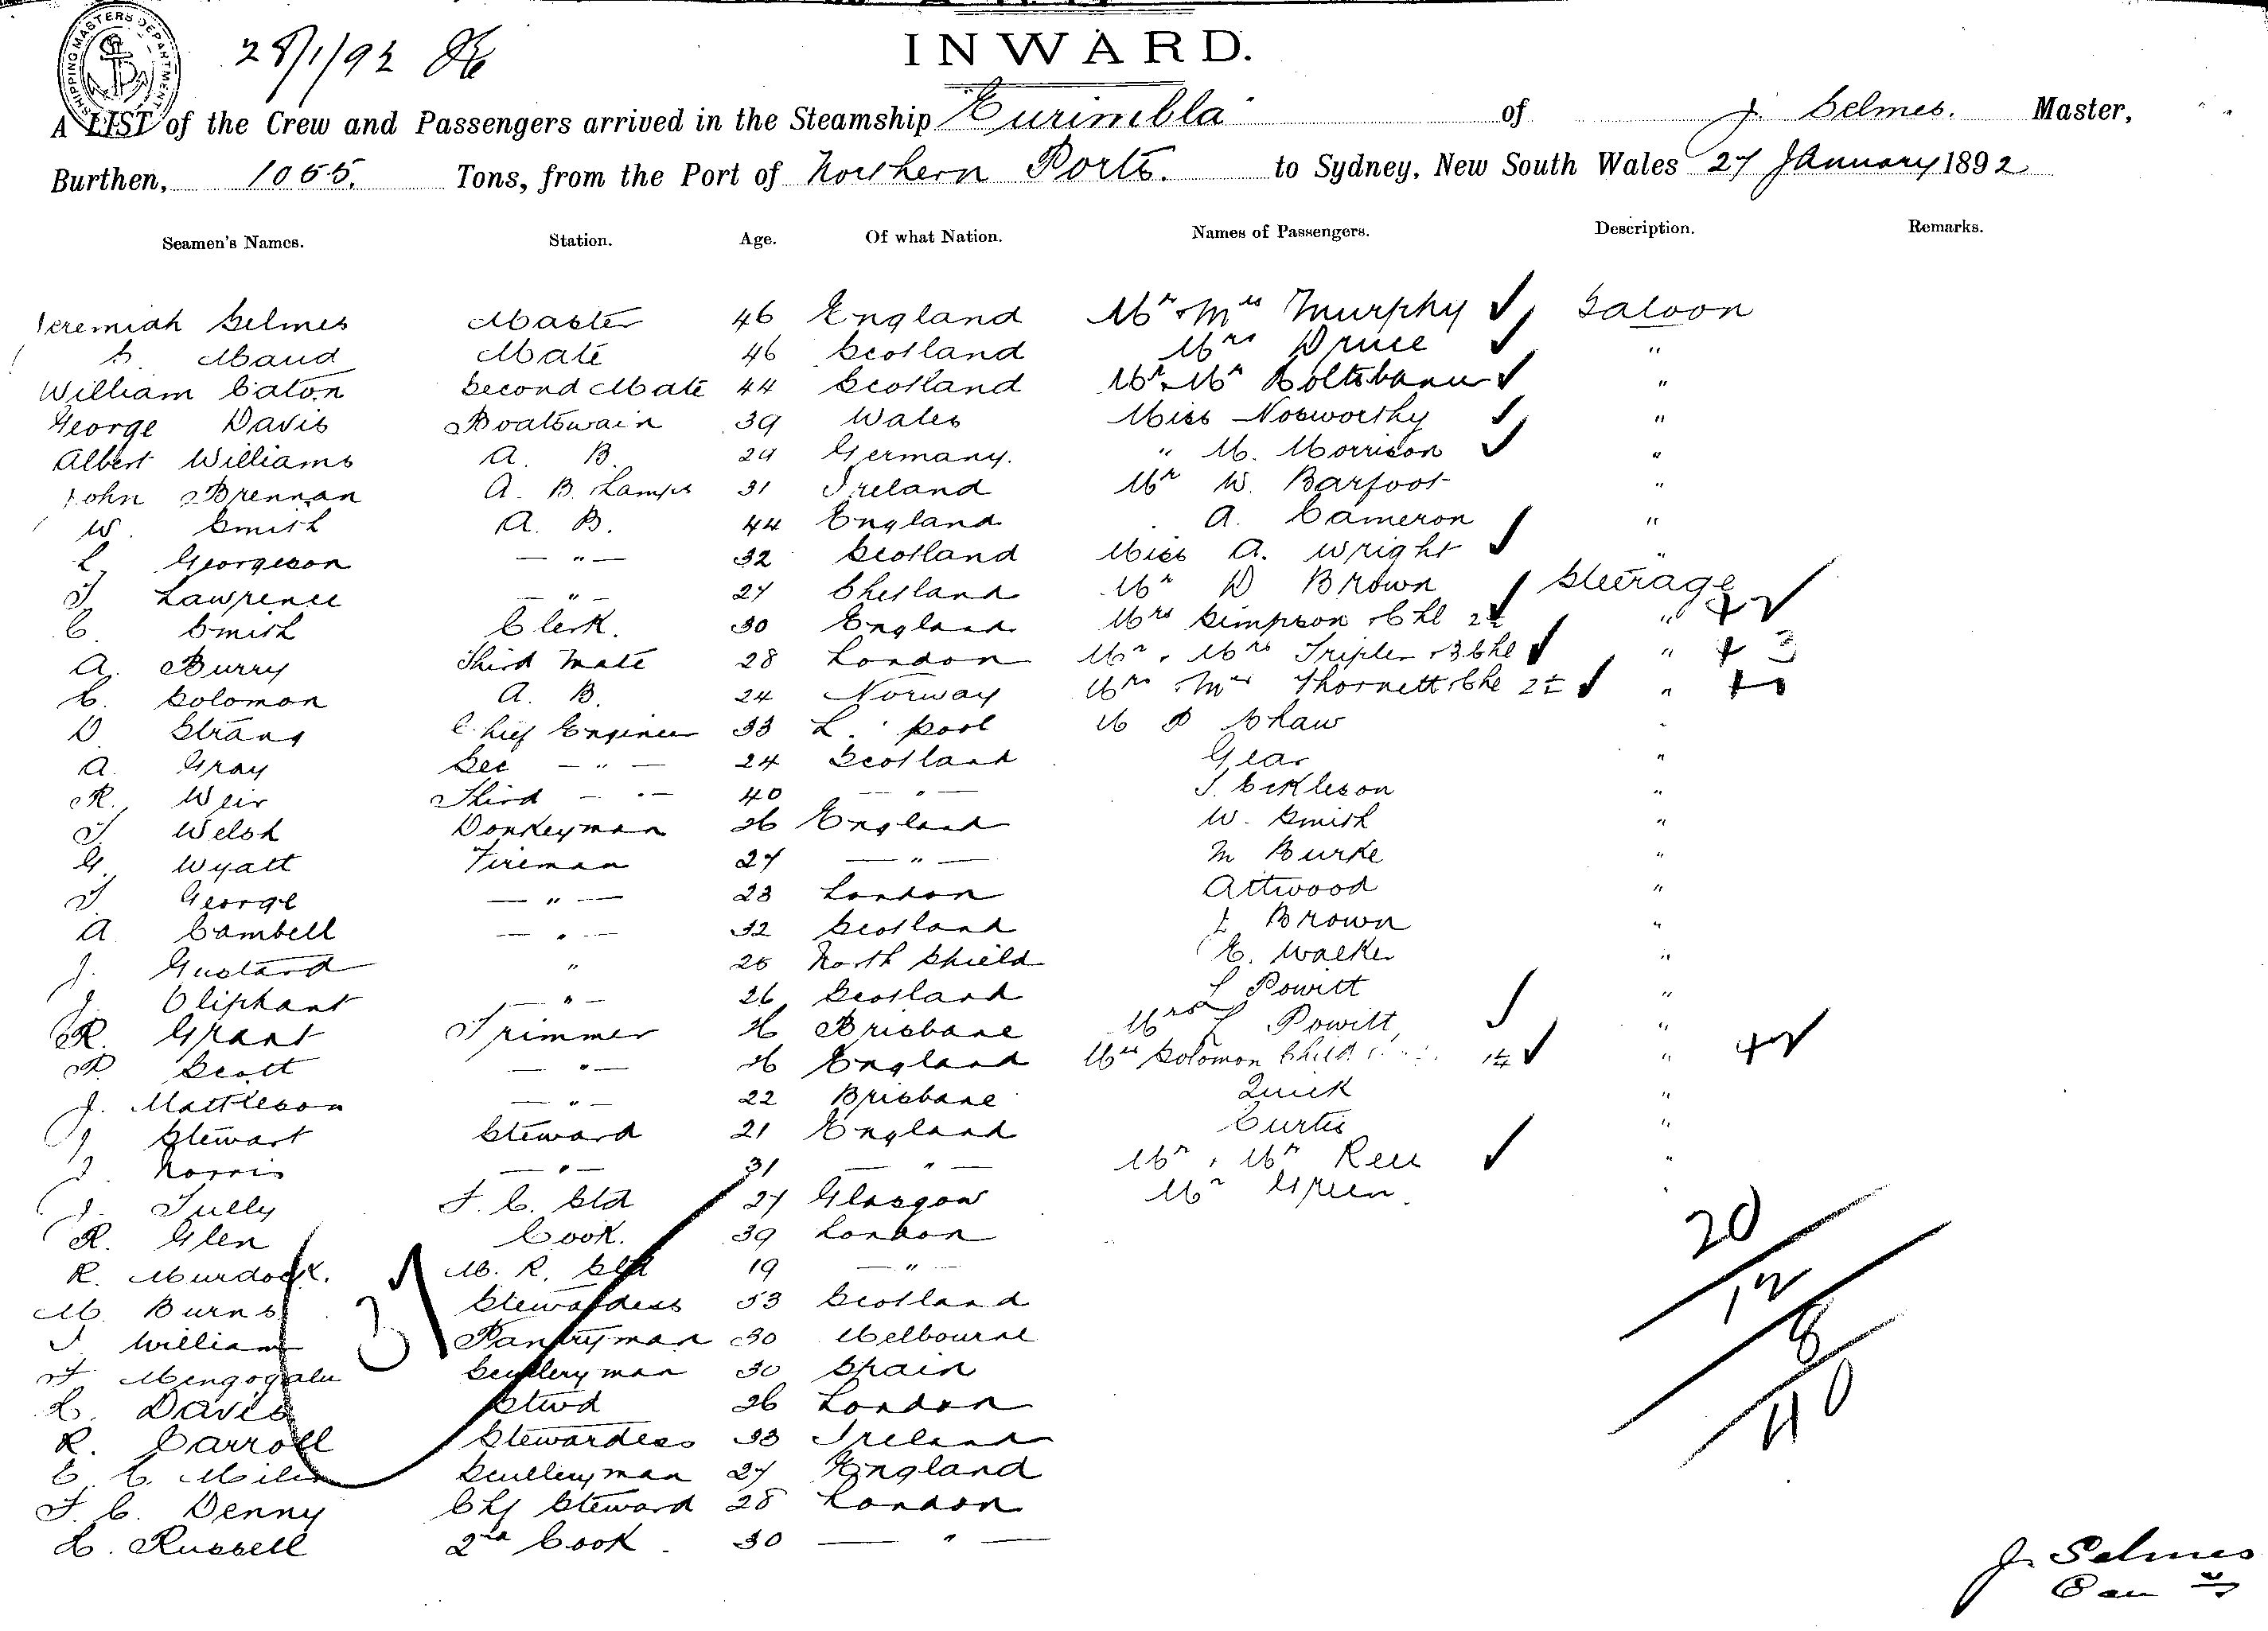 SHIPPING MASTERS DEPARTMENT
28/1/92
INWARD.
A LIST of the Crew and Passengers arrived in the Steamship "Eurimbla" of J. Selmes. Master,
Burthen, 1055. Tons, from the Port of Northern Ports. to Sydney, New South Wales 27 January 1892
Seamen's Names. Station. Age. Of what Nation. Names of Passengers. Description. Remarks.
Jeremiah Selmes Master 46 England Mr & Mrs Murphy ✓ Saloon
S. Maud Mate 46 Scotland Mrs Druce ✓ "
William Caton Second Mate 44 Scotland ✓ "
George Davis Boatswain 39 Wales Miss Nosworthy ✓ "
Albert Williams A. B. 29 Germany. " M. Morrison ✓ "
John Brennan A. B. Lamps 31 Ireland Mr W. Barfoot "
W. Smith A. B. 44 England A. Cameron "
L. Georgeson — " — 32 Scotland Miss A. Wright ✓ "
T Lawrence — " — 27 Shetland Mr D Brown Steerage
C. Smith Clerk. 30 England Mrs Simpson & Chl 2 ✓ "
A. Burry Third Mate 28 London Mr & Mrs Tripler & 3 Chl ✓ " 3
C. Solomon A. B. 24 Norway Thornett & Chl 2 ✓ "
D. Strang Chief Engineer 33 L. pool Shaw "
A. Gray Sec — " — 24 Scotland Gear "
R. Weir Third — " — 40 — " — "
T Welsh Donkeyman 26 England W. Smith "
G. Wyatt Fireman 27 — " — M Burke "
T George — " — 23 London Attwood "
A Cambell — " — 32 Scotland Brown "
J. Gustard " 25 North Shield E. Walker "
J. Oliphant — " — 26 Scotland L Powitt "
R. Grant Trimmer 26 Brisbane Mrs L Powitt ✓ "
P Scott — " — 26 England Mrs Solomon Child ✓ "
J. Mattleson — " — 22 Brisbane Quick "
J Stewart Steward 21 England Curtis "
J Norris — " — 31 — " — ✓ "
J. Tully F. C. Std 27 Glasgow Mr Green. "
R. Glen Cook. 39 London 20
R. Murdock. ✓ M. R. Std 19 — " — 12
M. Burns 37 Stewardess 53 Scotland 8
J. William Pantryman 30 Melbourne 40
Scullery man 30 Spain
L. Davis Stwd 26 London
R. Carroll Stewardess 33 Ireland
E. C. Miln Sculleryman 27 England
F. C. Denny Chf Steward 28 London
L. Russell 2nd Cook. 30 — " —
J. Selmes